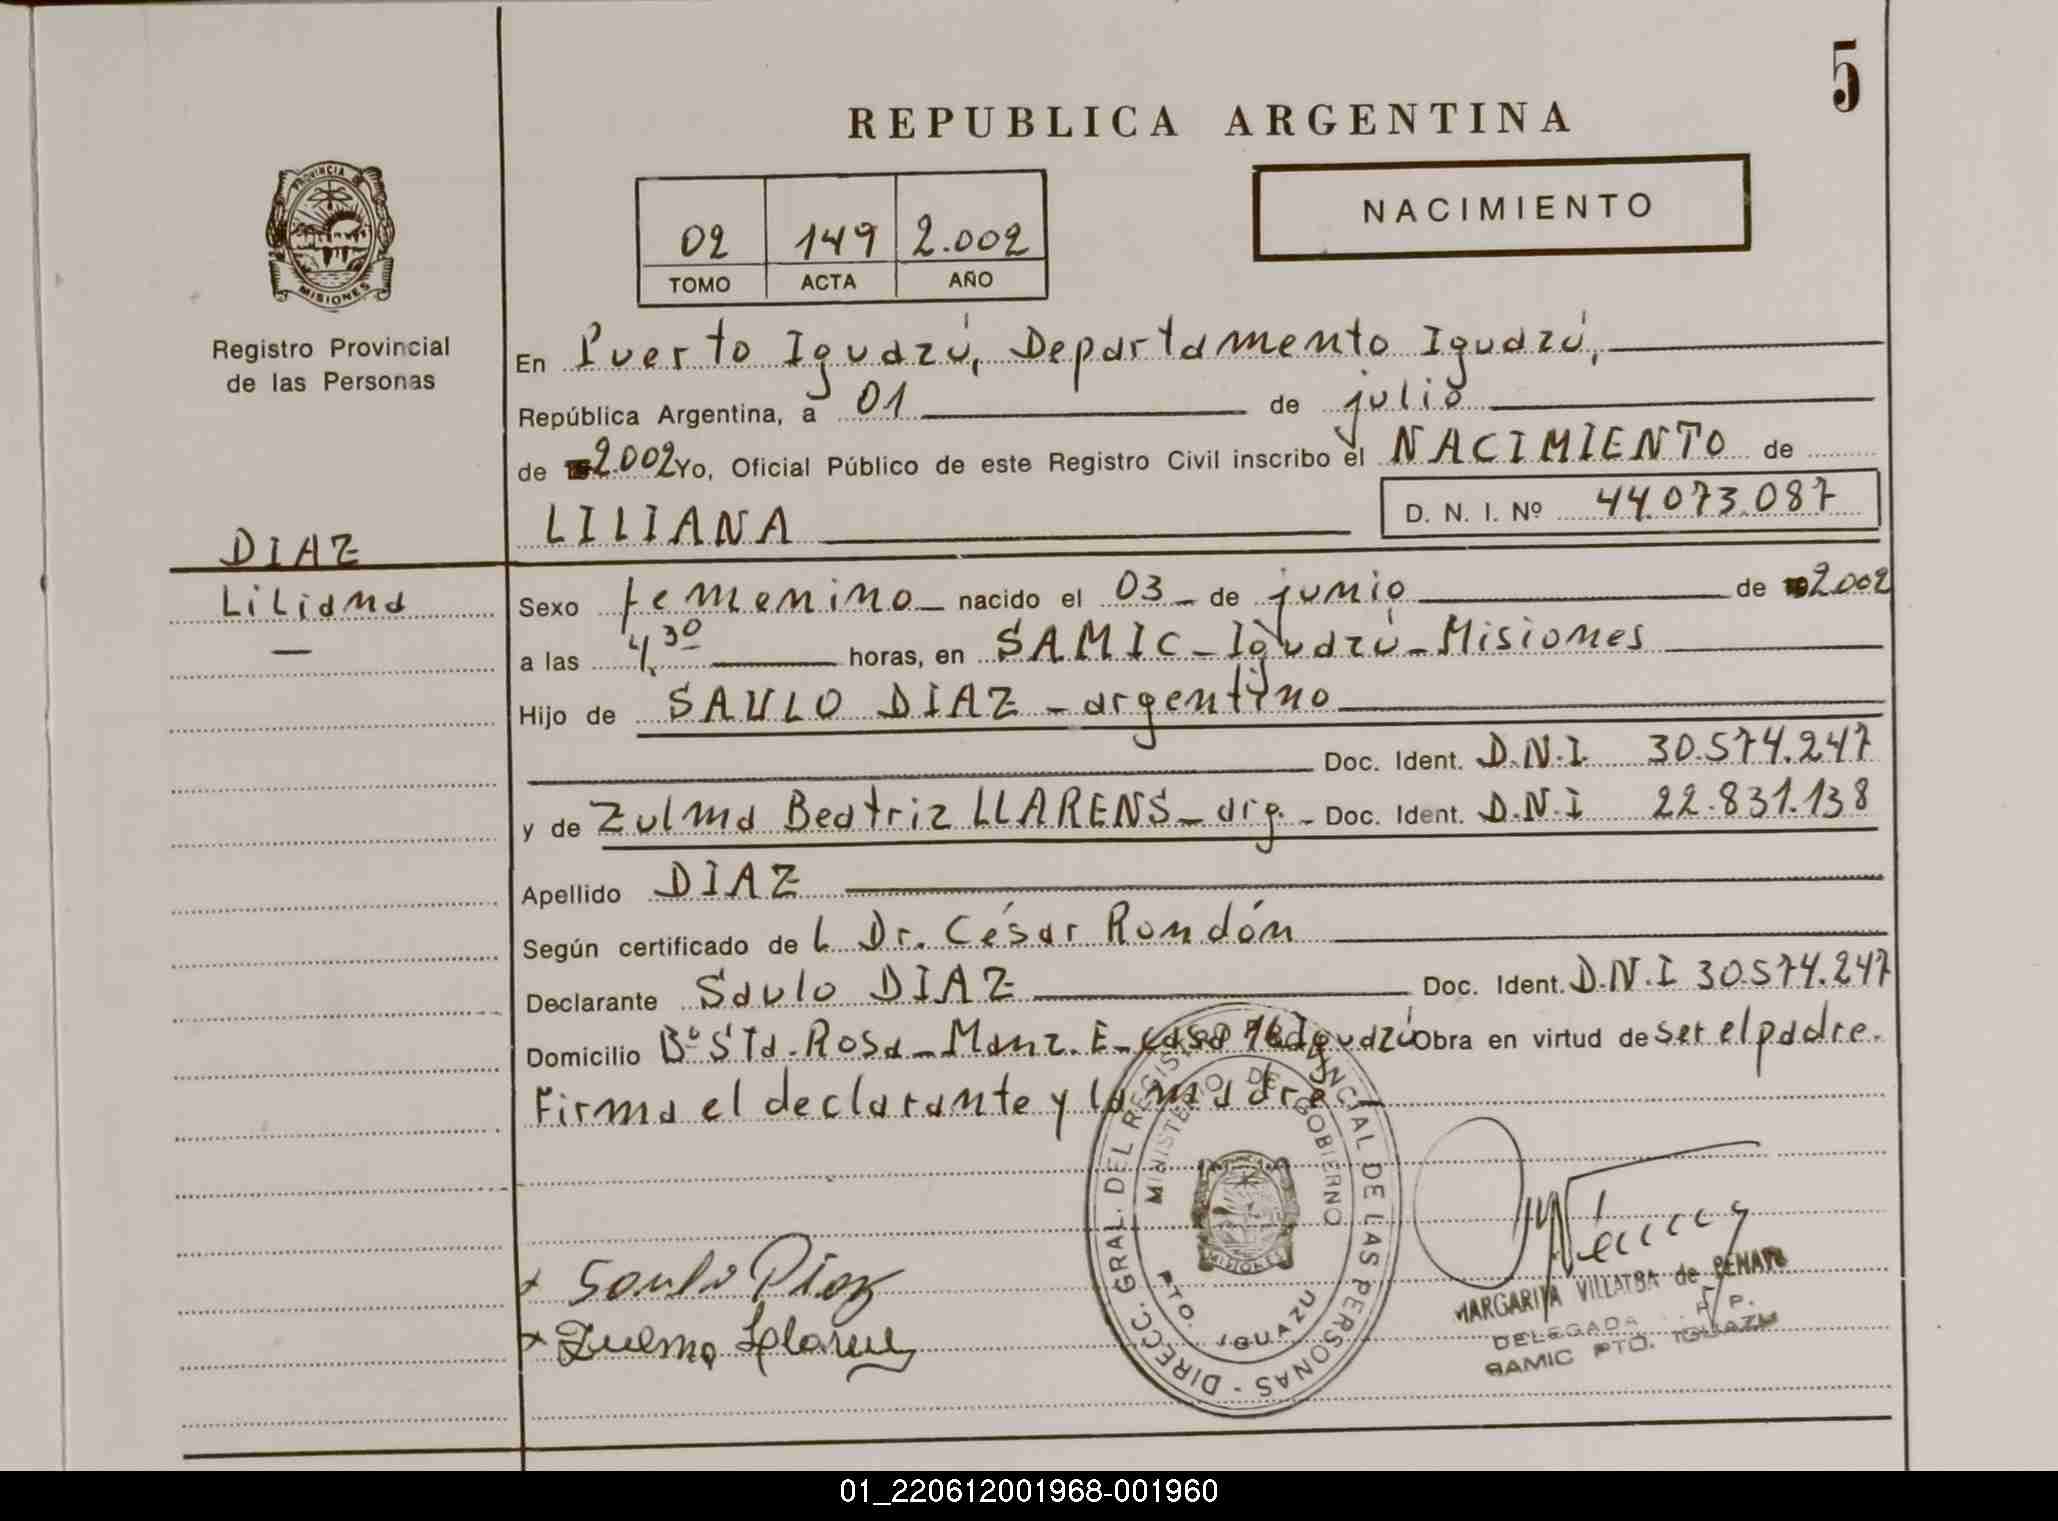 5
REPUBLICA ARGENTINA
NACIMIENTO
02 149 2.002
TOMO ACTA AÑO
PROVINCIA DE
MISIONES
Registro Provincial
de las Personas
En Puerto Iguazú, Departamento Iguazú,
República Argentina, a 01 de julio
de 2.002 Yo, Oficial Público de este Registro Civil inscribo el NACIMIENTO de
LILIANA D. N. I. Nº 44.073.087
DIAZ
Liliana
Sexo femenino nacido el 03 de junio de 2.002
a las 4,30 horas, en SAMIC - Iguazú - Misiones
Hijo de SAULO DIAZ - argentino
Doc. Ident. D.N.I. 30.574.247
y de Zulma Beatriz LLARENS - arg. - Doc. Ident. D.N.I 22.831.138
Apellido DIAZ
Según certificado de l Dr. César Rondón
Declarante Saulo DIAZ Doc. Ident. D.N.I 30.574.247
Domicilio Bº Sta. Rosa - Manz. E - casa Iguazú Obra en virtud de ser el padre.
Firma el declarante y la madre.
DIRECC. GRAL. DEL REGISTRO PROVINCIAL DE LAS PERSONAS -
MINISTERIO DE GOBIERNO
MISIONES
PTO. IGUAZU
Saulo Diaz
Zulma Llarens
MARGARITA VILLALBA de BENAY
DELEGADA
SAMIC PTO. IGUAZU
01_220612001968-001960